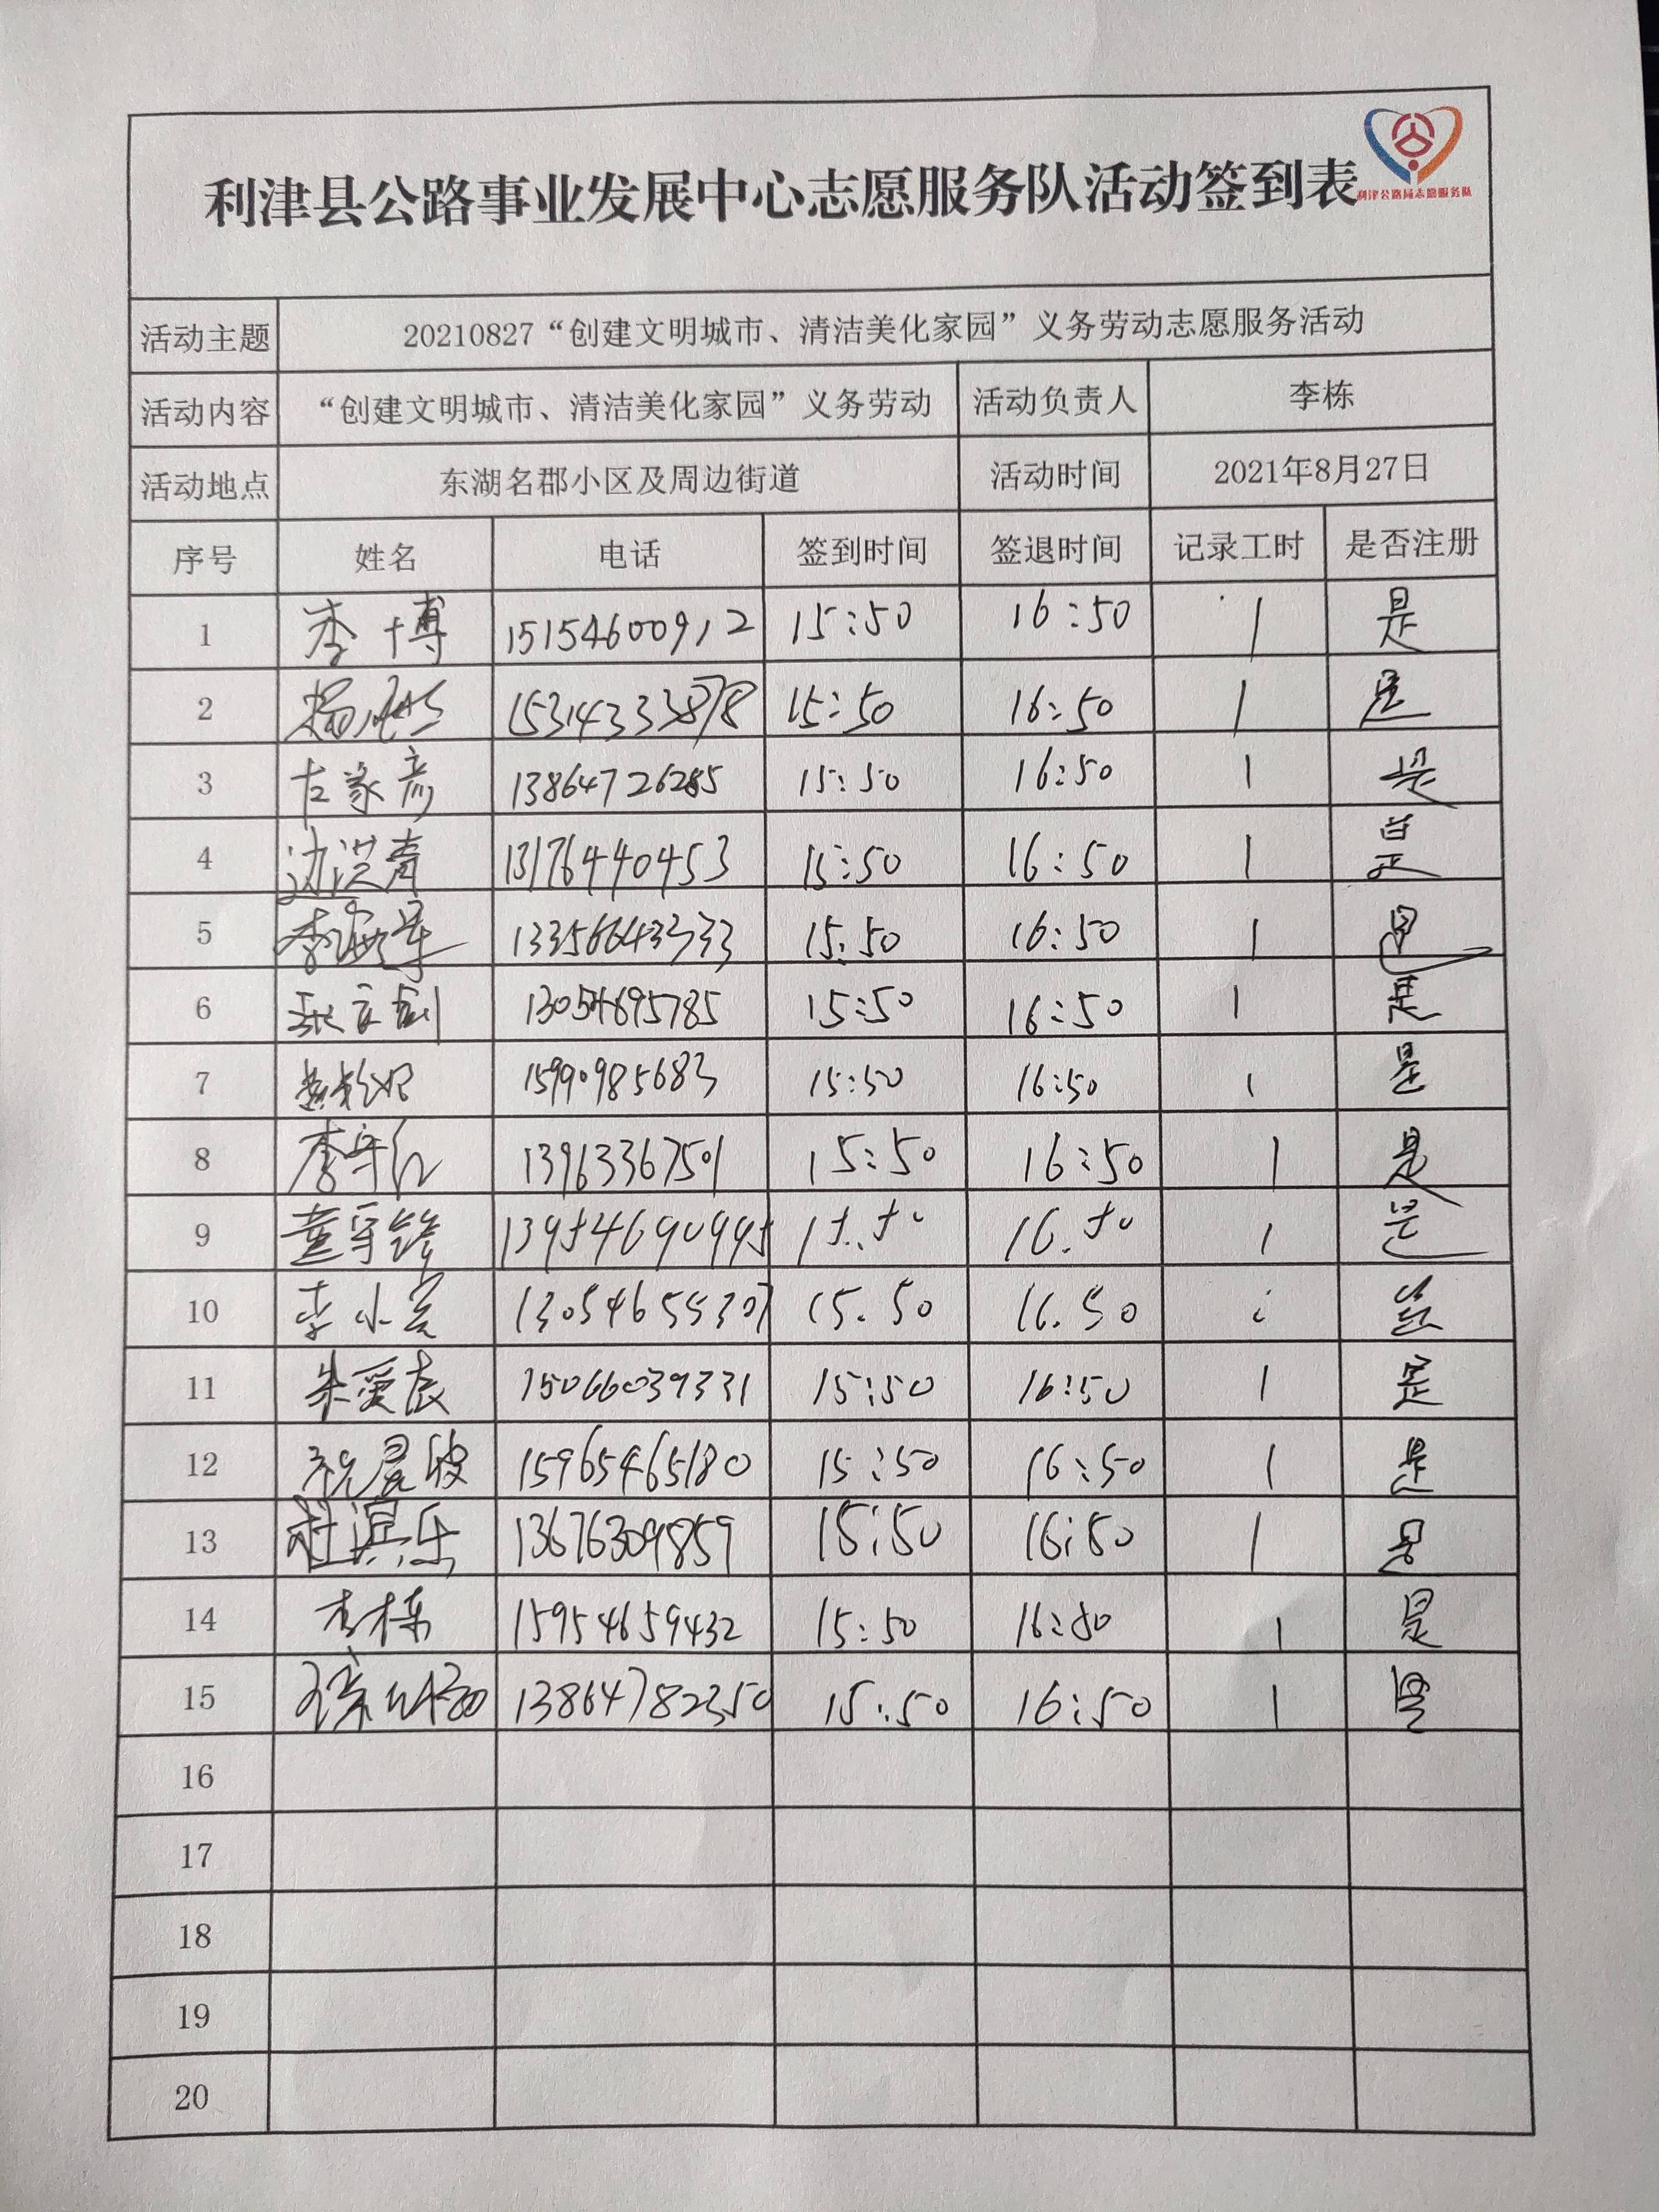 利津县公路事业发展中心志愿服务队活动签到表
利津公路局志愿服务队
活动主题 20210827“创建文明城市、清洁美化家园”义务劳动志愿服务活动
活动内容 “创建文明城市、清洁美化家园”义务劳动 活动负责人 李栋
活动地点 东湖名郡小区及周边街道 活动时间 2021年8月27日
序号 姓名 电话 签到时间 签退时间 记录工时 是否注册
1 李博 15154600912 15:50 16:50 1 是
2 15:50 16:50 1 是
3 左家彦 13864726285 15:50 16:50 1 是
4 边洪青 13176440453 15:50 16:50 1 是
5 李海军 13356643333 15:50 16:50 1 是
6 15:50 16:50 1 是
7 15990985683 15:50 16:50 1 是
8 李守红 13963367501 15:50 16:50 1 是
9 董守锋 15.50 16.50 1 是
10 李小宾 13054655307 15.50 16.50 1 是
11 朱爱辰 15066039331 15:50 16:50 1 是
12 祝晨波 15965465180 15:50 16:50 1 是
13 杜滨乐 13676309859 15:50 16:50 1 是
14 李栋 15954659432 15:50 16:50 1 是
15 13864782350 15:50 16:50 1 是
16
17
18
19
20